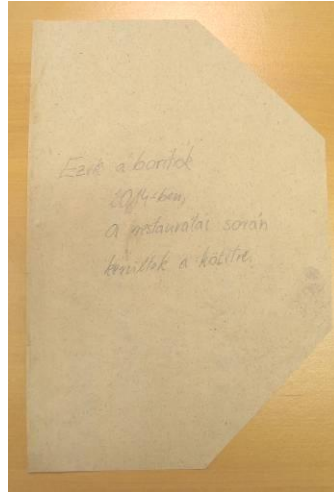 Ezek a borítók
2014-ben,
a restaurálás során
kerültek a kötetre.